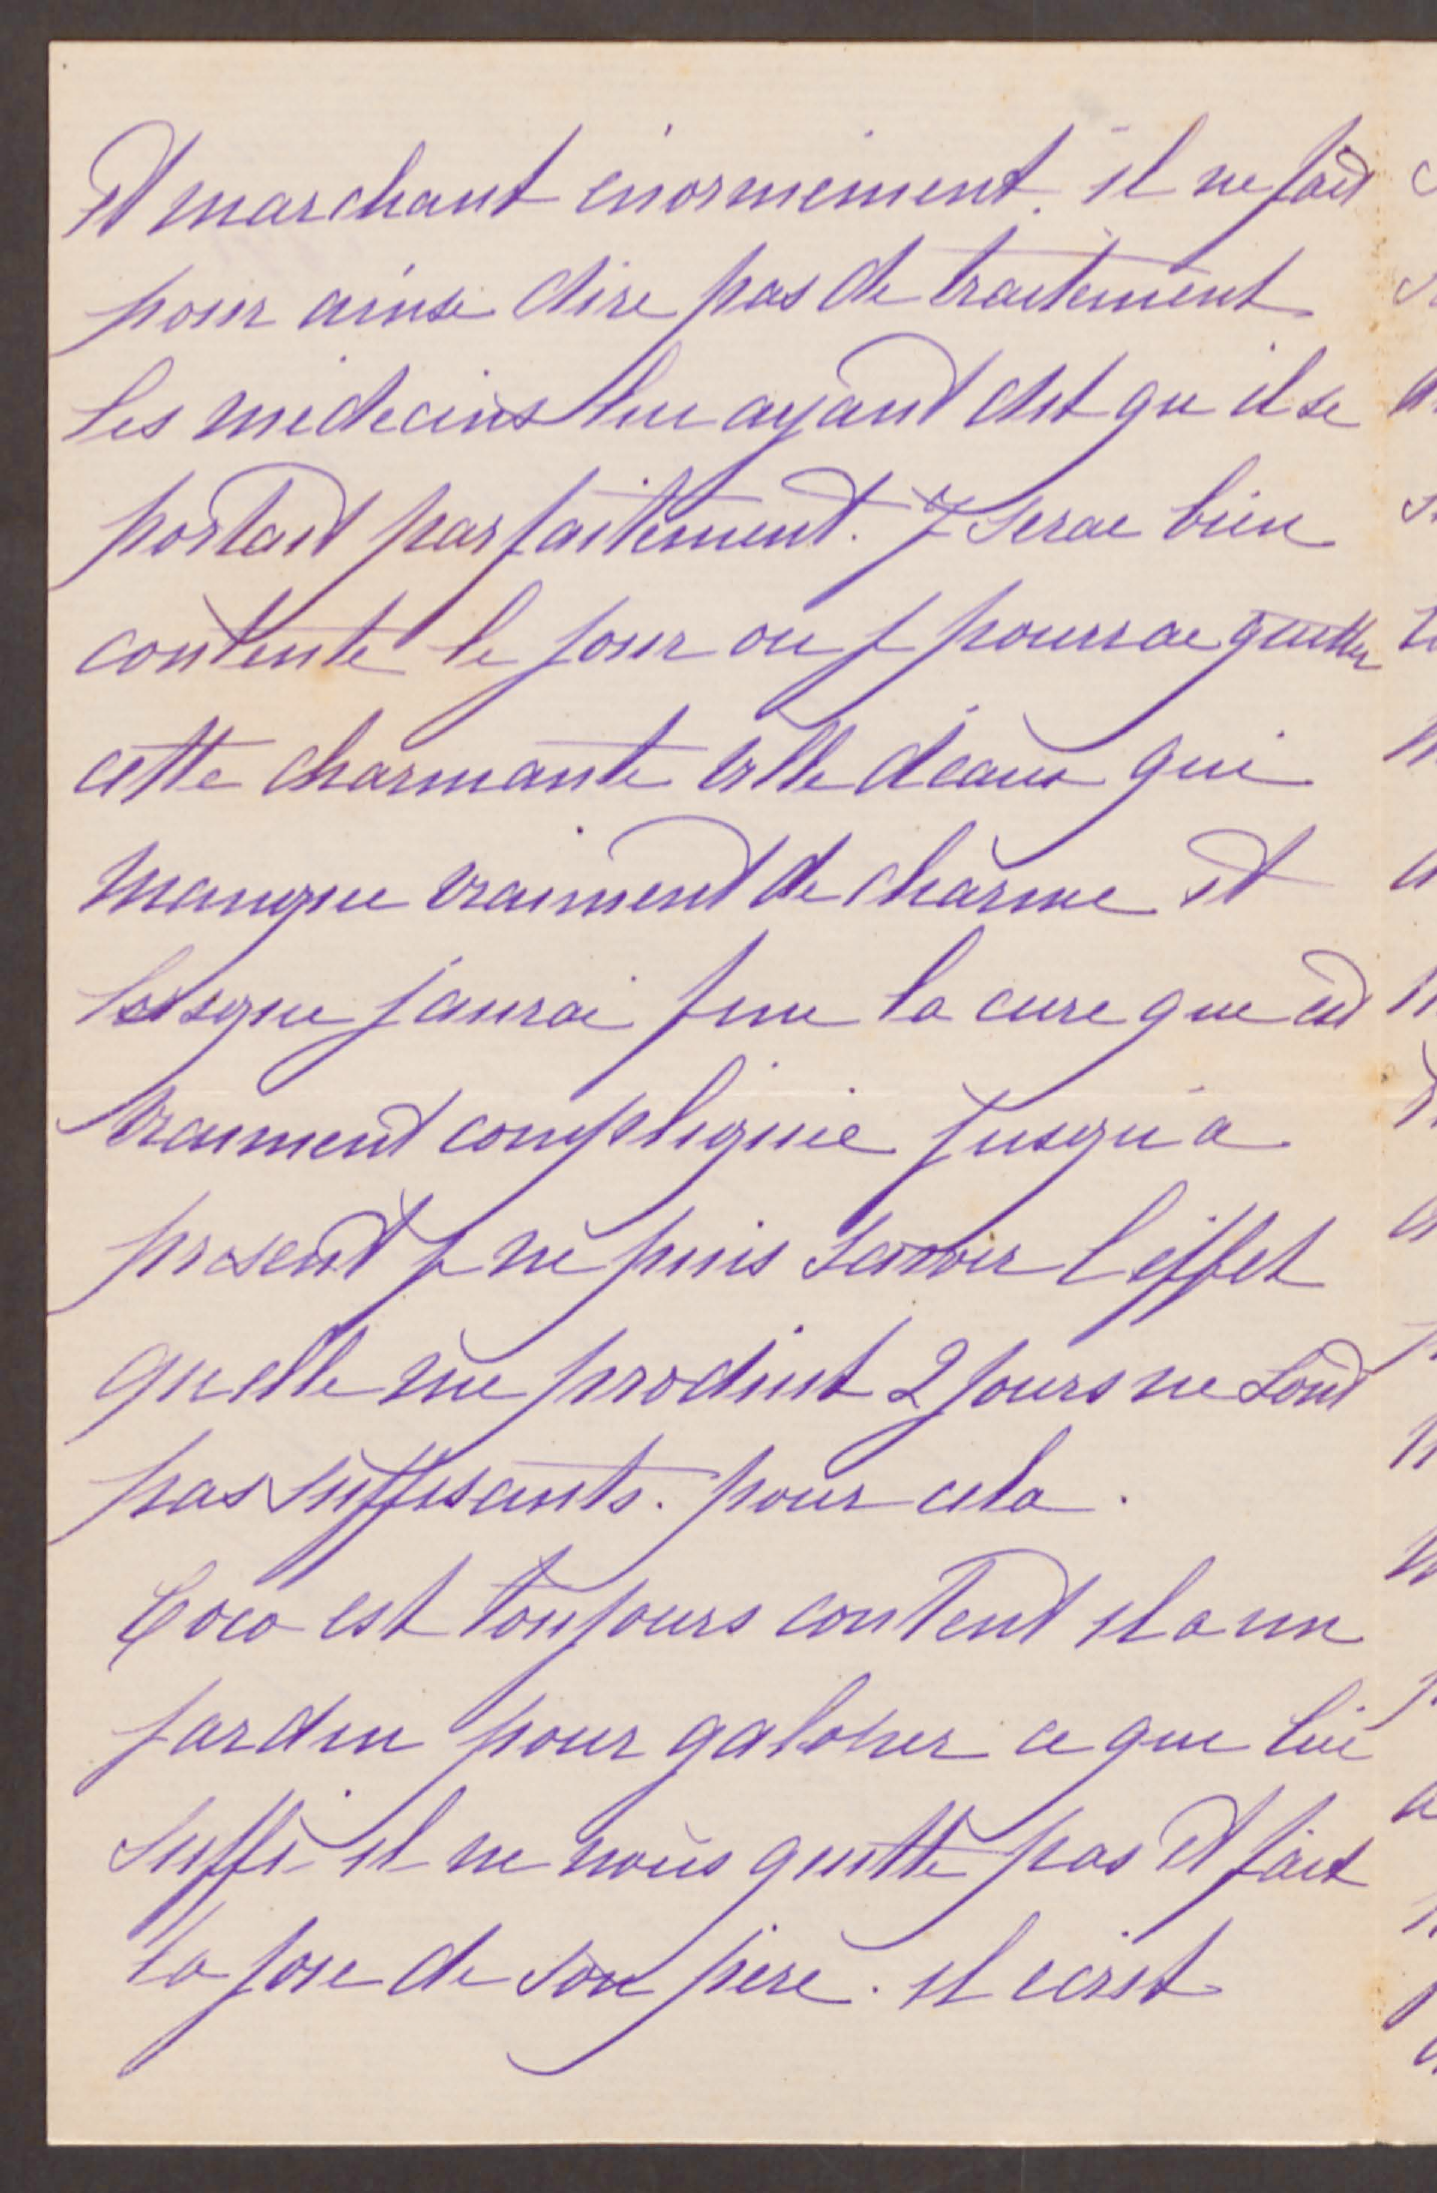 et marchant énormément. il ne fait
pour ainsi dire pas de traitement
les médecins lui ayant dit qu il se
portait parfaitement. Je serai bien
contente le jour ou je pourrai quitter
cette charmante ville d'eaux qui
manque vraiment de charme et
lorsque j'aurai fini la cure qui est
vraiment compliquée jusqu'a
présent je ne puis savoir l'effet
qu'elle me produit 2 jours ne sont
pas suffisants. pour cela.
Coco est toujours content il a un
jardin pour galoper ce qui lui
suffi il ne nous quitte pas et fait
la joie de son père. il écrit